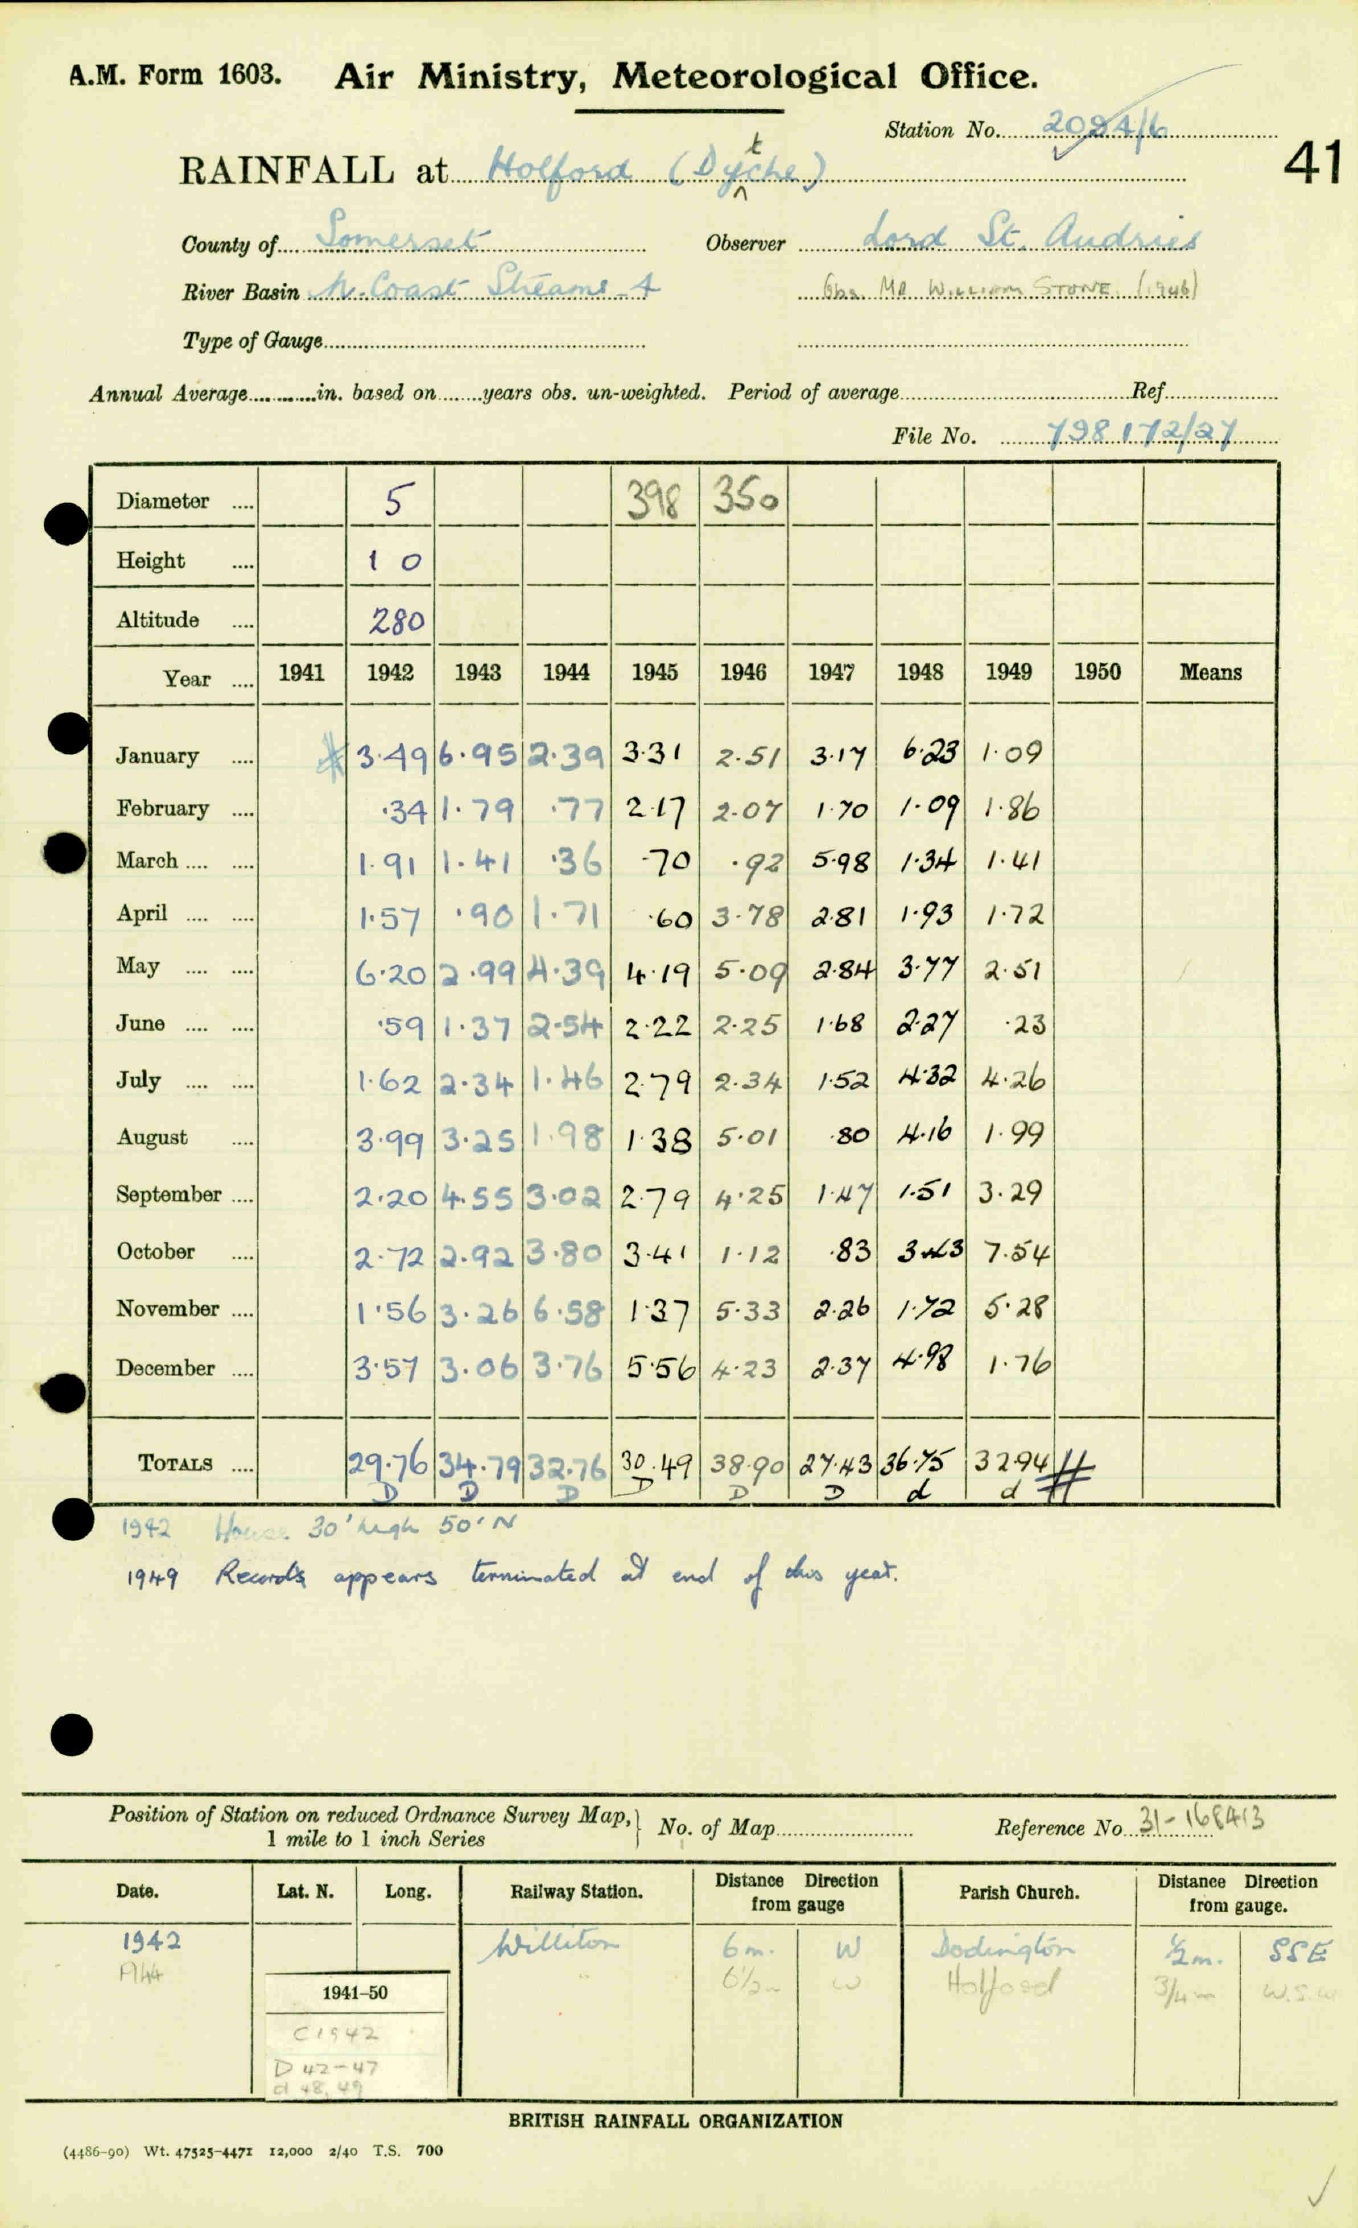 A.M. Form 1603. Air Ministry, Meteorological Office.
Station No. 2024/6
41
RAINFALL at Holford (Dytche)
County of Somerset Observer Lord St. Audries
River Basin N. Coast Streams - 4 Obs. Mr William Stone (1946)
Type of Gauge
Annual Average in. based on years obs. un-weighted. Period of average Ref
File No. 798172/27
Diameter 5 398 350
Height 10
Altitude 280
Year 1941 1942 1943 1944 1945 1946 1947 1948 1949 1950 Means
January # 3.49 6.95 2.39 3.31 2.51 3.17 6.23 1.09
February .34 1.79 .77 2.17 2.07 1.70 1.09 1.86
March 1.91 1.41 .36 .70 .92 5.98 1.34 1.41
April 1.57 .90 1.71 .60 3.78 2.81 1.93 1.72
May 6.20 2.99 4.39 4.19 5.09 2.84 3.77 2.51
June .59 1.37 2.54 2.22 2.25 1.68 2.27 .23
July 1.62 2.34 1.46 2.79 2.34 1.52 4.32 4.26
August 3.99 3.25 1.98 1.38 5.01 .80 4.16 1.99
September 2.20 4.55 3.02 2.79 4.25 1.47 1.51 3.29
October 2.72 2.92 3.80 3.41 1.12 .83 3.43 7.54
November 1.56 3.26 6.58 1.37 5.33 2.26 1.72 5.28
December 3.57 3.06 3.76 5.56 4.23 2.37 4.98 1.76
TOTALS 29.76 34.79 32.76 30.49 38.90 27.43 36.75 32.94 #
D D D D D D d d
1942 House 30' high 50' N
1949 Records appears terminated at end of this year.
Position of Station on reduced Ordnance Survey Map, 1 mile to 1 inch Series } No. of Map Reference No. 31-168413
Date. Lat. N. Long. Railway Station. Distance Direction from gauge Parish Church. Distance Direction from gauge.
1942 Williton 6m. W Dodington 1/2m. SSE
1944 " 6 1/2m W Holford 3/4m W.S.W
1941–50
C1942
D 42-47
d 48, 49
BRITISH RAINFALL ORGANIZATION
(4486-90) Wt. 47525-4471 12,000 2/40 T.S. 700